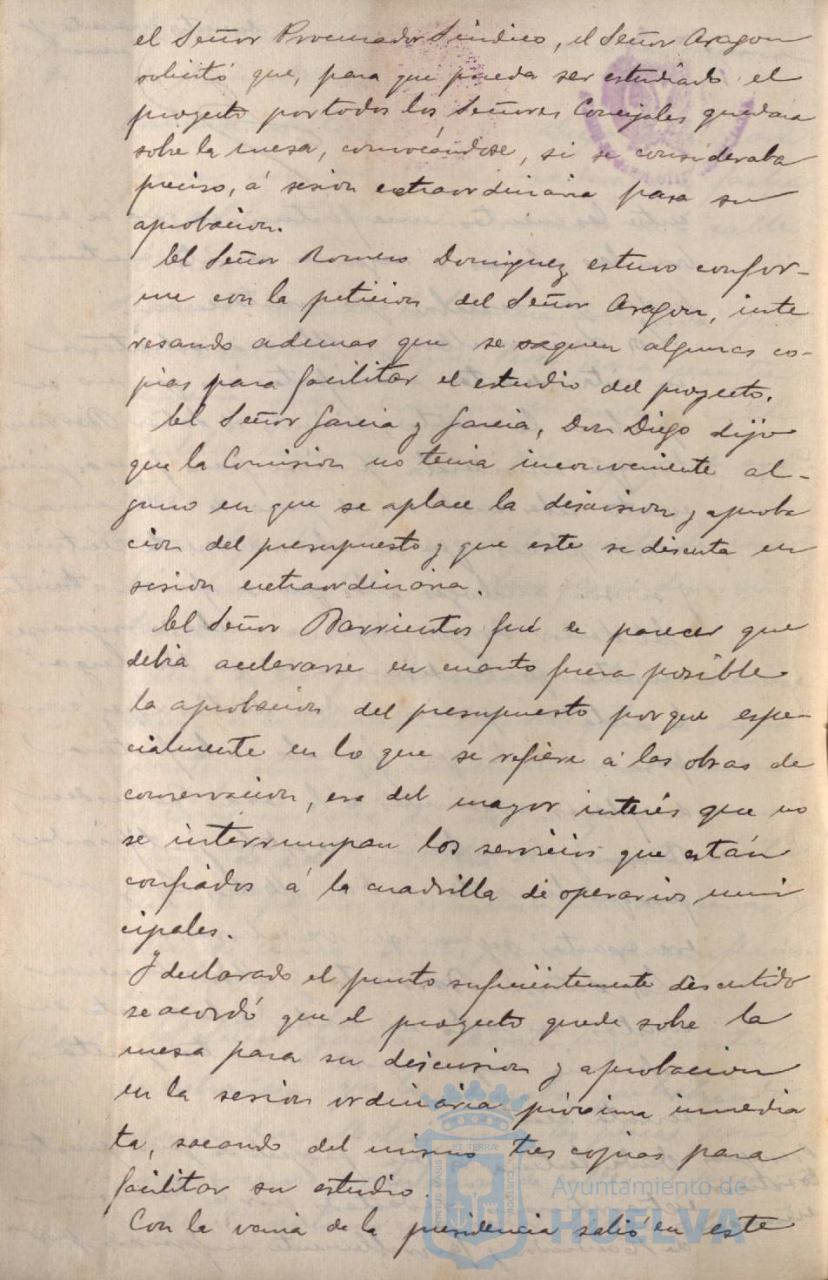 el Señor Procurador Síndico, el Señor Aragon
solicitó que, para que pueda ser estudiado el
proyecto por todos los Señores Concejales quedara
sobre la mesa, convocándose, si se consideraba
preciso, á sesion extraordinaria para su
aprobacion.
El Señor Romero Dominguez estuvo confor-
me con la peticion del Señor Aragon, inte
resando ademas que se saquen algunas co-
pias para facilitar el estudio del proyecto.
El Señor Garcia y Garcia, Don Diego dijo
que la Comision no tenia inconveniente al-
guno en que se aplace la discusion y aproba
cion del presupuesto y que este se discuta en
sesion extraordinaria.
El Señor Barrientos fué de parecer que
debia acelerarse en cuanto fuera posible
la aprobacion del presupuesto porque espe-
cialmente en lo que se refiere á las obras de
conservacion, era del mayor interés que no
se interrumpan los servicios que están
confiados á la cuadrilla de operarios muni
cipales.
Y declarado el punto suficientemente discutido
se acordó que el proyecto quede sobre la
mesa para su discusion y aprobacion
en la sesion ordinaria próxima inmedia
ta, sacando del mismo tres copias para
facilitar su estudio.
Con la venia de la presidencia salió en este
Ayuntamiento de
HUELVA